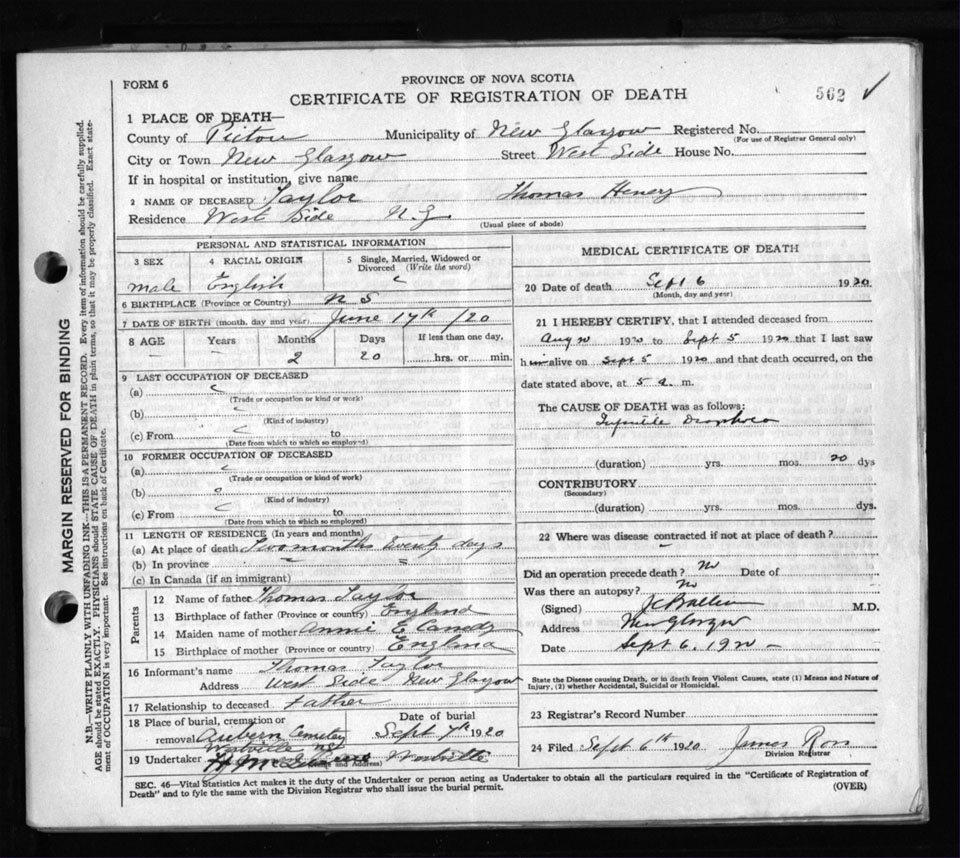 FORM 6
PROVINCE OF NOVA SCOTIA
CERTIFICATE OF REGISTRATION OF DEATH
562 ✓
1 PLACE OF DEATH—
County of Pictou Municipality of New Glasgow Registered No.
(For use of Registrar General only)
City or Town New Glasgow Street West Side House No.
If in hospital or institution, give name
2 NAME OF DECEASED Taylor Thomas Henery
Residence West Side N. G
(Usual place of abode)
PERSONAL AND STATISTICAL INFORMATION
3 SEX 4 RACIAL ORIGIN 5 Single, Married, Widowed or Divorced (Write the word)
male English
6 BIRTHPLACE (Province or Country) N S
7 DATE OF BIRTH (month, day and year) June 17th /20
8 AGE Years Months Days If less than one day,
— — 2 20 hrs. or min.
9 LAST OCCUPATION OF DECEASED
(a)
(Trade or occupation or kind or work)
(b)
(Kind of industry)
(c) From to
(Date from which to which so employed)
10 FORMER OCCUPATION OF DECEASED
(a)
(Trade or occupation or kind of work)
(b)
(Kind of industry)
(c) From to
(Date from which to which so employed)
11 LENGTH OF RESIDENCE (In years and months)
(a) At place of death Two months twenty days
(b) In province "
(c) In Canada (if an immigrant)
Parents
12 Name of father Thomas Taylor
13 Birthplace of father (Province or country) England
14 Maiden name of mother Annie E
15 Birthplace of mother (Province or country) England
16 Informant's name Thomas Taylor
Address West Side New Glasgow
17 Relationship to deceased Father
18 Place of burial, cremation or removal Auburn Cemetery
Date of burial
Sept 7th 1920
19 Undertaker and Address)
MEDICAL CERTIFICATE OF DEATH
20 Date of death Sept 6 1920.
(Month, day and year)
21 I HEREBY CERTIFY, that I attended deceased from
Aug 20 1920 to Sept 5 1920 that I last saw
him alive on Sept 5 1920 and that death occurred, on the
date stated above, at 5 a. m.
The CAUSE OF DEATH was as follows:
Infantile Diarrhoea
(duration) yrs. mos. 20 dys
CONTRIBUTORY
(Secondary)
(duration) yrs. mos. dys.
22 Where was disease contracted if not at place of death?
Did an operation precede death? No Date of
Was there an autopsy? No
(Signed) M.D.
Address New Glasgow
Date Sept 6, 1920 —
State the Disease causing Death, or in death from Violent Causes, state (1) Means and Nature of
Injury, (2) whether Accidental, Suicidal or Homicidal.
23 Registrar's Record Number
24 Filed Sept 6th 1920 James Ross
Division Registrar
SEC. 46—Vital Statistics Act makes it the duty of the Undertaker or person acting as Undertaker to obtain all the particulars required in the "Certificate of Registration of
Death" and to fyle the same with the Division Registrar who shall issue the burial permit.
(OVER)
MARGIN RESERVED FOR BINDING
N.B.—WRITE PLAINLY WITH UNFADING INK—THIS IS A PERMANENT RECORD. Every item of information should be carefully supplied.
AGE should be stated EXACTLY. PHYSICIANS should STATE CAUSE OF DEATH in plain terms, so that it may be properly classified. Exact state-
ment of OCCUPATION is very important. See instructions on back of Certificate.